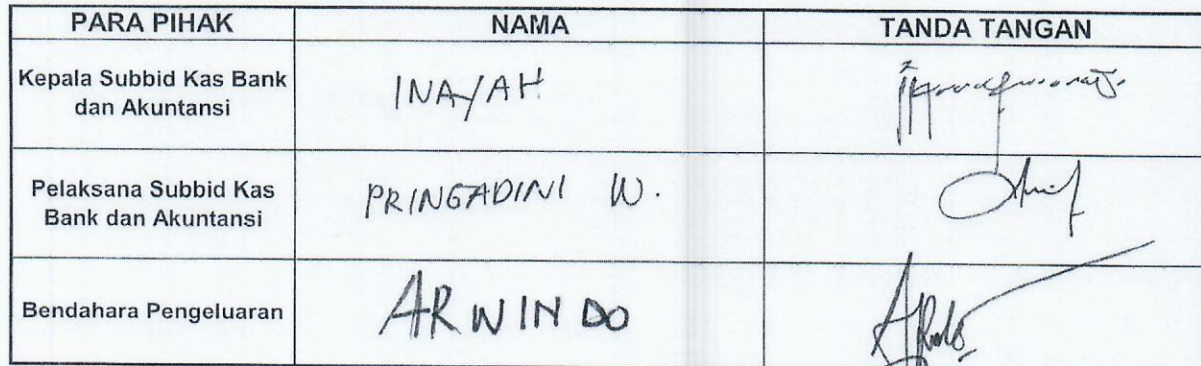 PARA PIHAK NAMA TANDA TANGAN
Kepala Subbid Kas Bank
dan Akuntansi
INAYAH
Pelaksana Subbid Kas
Bank dan Akuntansi
PRINGADINI W.
Bendahara Pengeluaran
ARWINDO